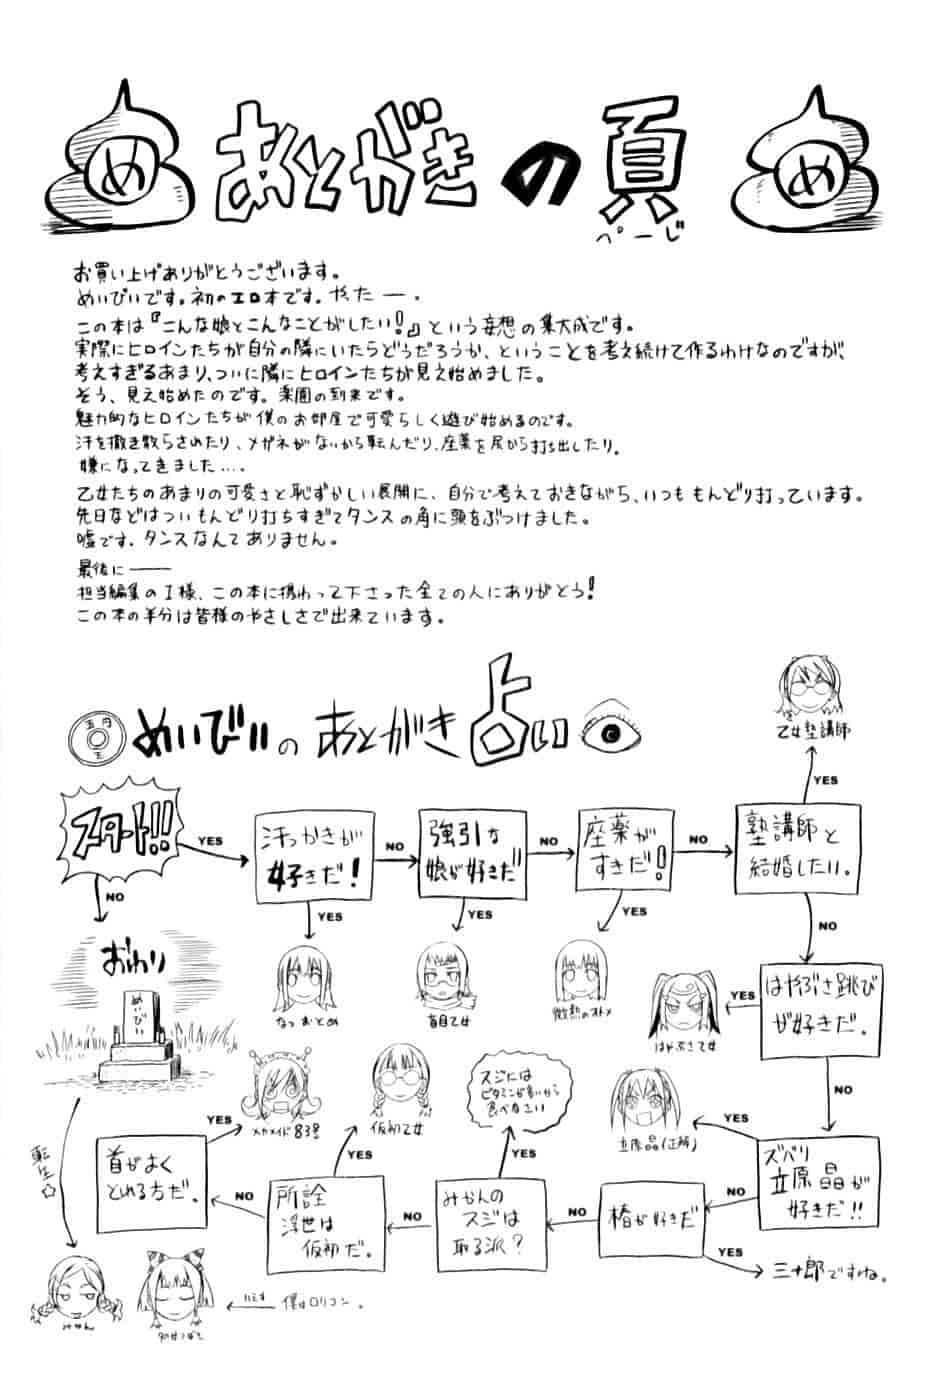 め
あとがきの頁
ぺーじ
め
お買い上げありがとうございます。
めいびいです。初のエロ本です。やったー。
この本は『こんな娘とこんなことがしたい!』という妄想の集大成です。
実際にヒロインたちが自分の隣にいたらどうだろうか、ということを考え続けて作るわけなのですが、
考えすぎるあまり、ついに隣にヒロインたちが見え始めました。
そう、見え始めたのです。楽園の到来です。
魅力的なヒロインたちが僕のお部屋で可愛らしく遊び始めるのです。
汗を撒き散らされたり、メガネがないから転んだり、座薬を尻から打ち出したり。
嫌になってきました....
乙女たちのあまりの可愛さと恥ずかしい展開に、自分で考えておきながら、いつももんどり打っています。
先日などはついもんどり打ちすぎてタンスの角に頭をぶつけました。
嘘です。タンスなんてありません。
最後に――
担当編集のI様、この本に携わって下さった全ての人にありがとう!
この本の半分は皆様のやさしさで出来ています。
五円
めいびいのあとがき占い
乙女塾講師
YES
スタート!!
YES
汗っかきが
好きだ!
NO
強引な
娘が好きだ
NO
座薬が
すきだ!
NO
塾講師と
結婚したい。
NO
YES
YES
YES
NO
おわり
めいびい
なつおとめ
盲目乙女
微熱のオトメ
はやぶさ乙女
YES
はやぶさ跳び
が好きだ。
NO
メカメイド83号
仮初乙女
スジには
ビタミンが多いから
食べなさい
立原晶(正解)
YES
ズバリ
立原晶が
好きだ!!
NO
椿が好きだ
YES
三十郎ですね。
NO
みかんの
スジは
取る派?
YES
NO
所詮
浮世は
仮初だ。
YES
NO
首がよく
とれる方だ。
YES
転生☆
みかん
僕はロリコン。